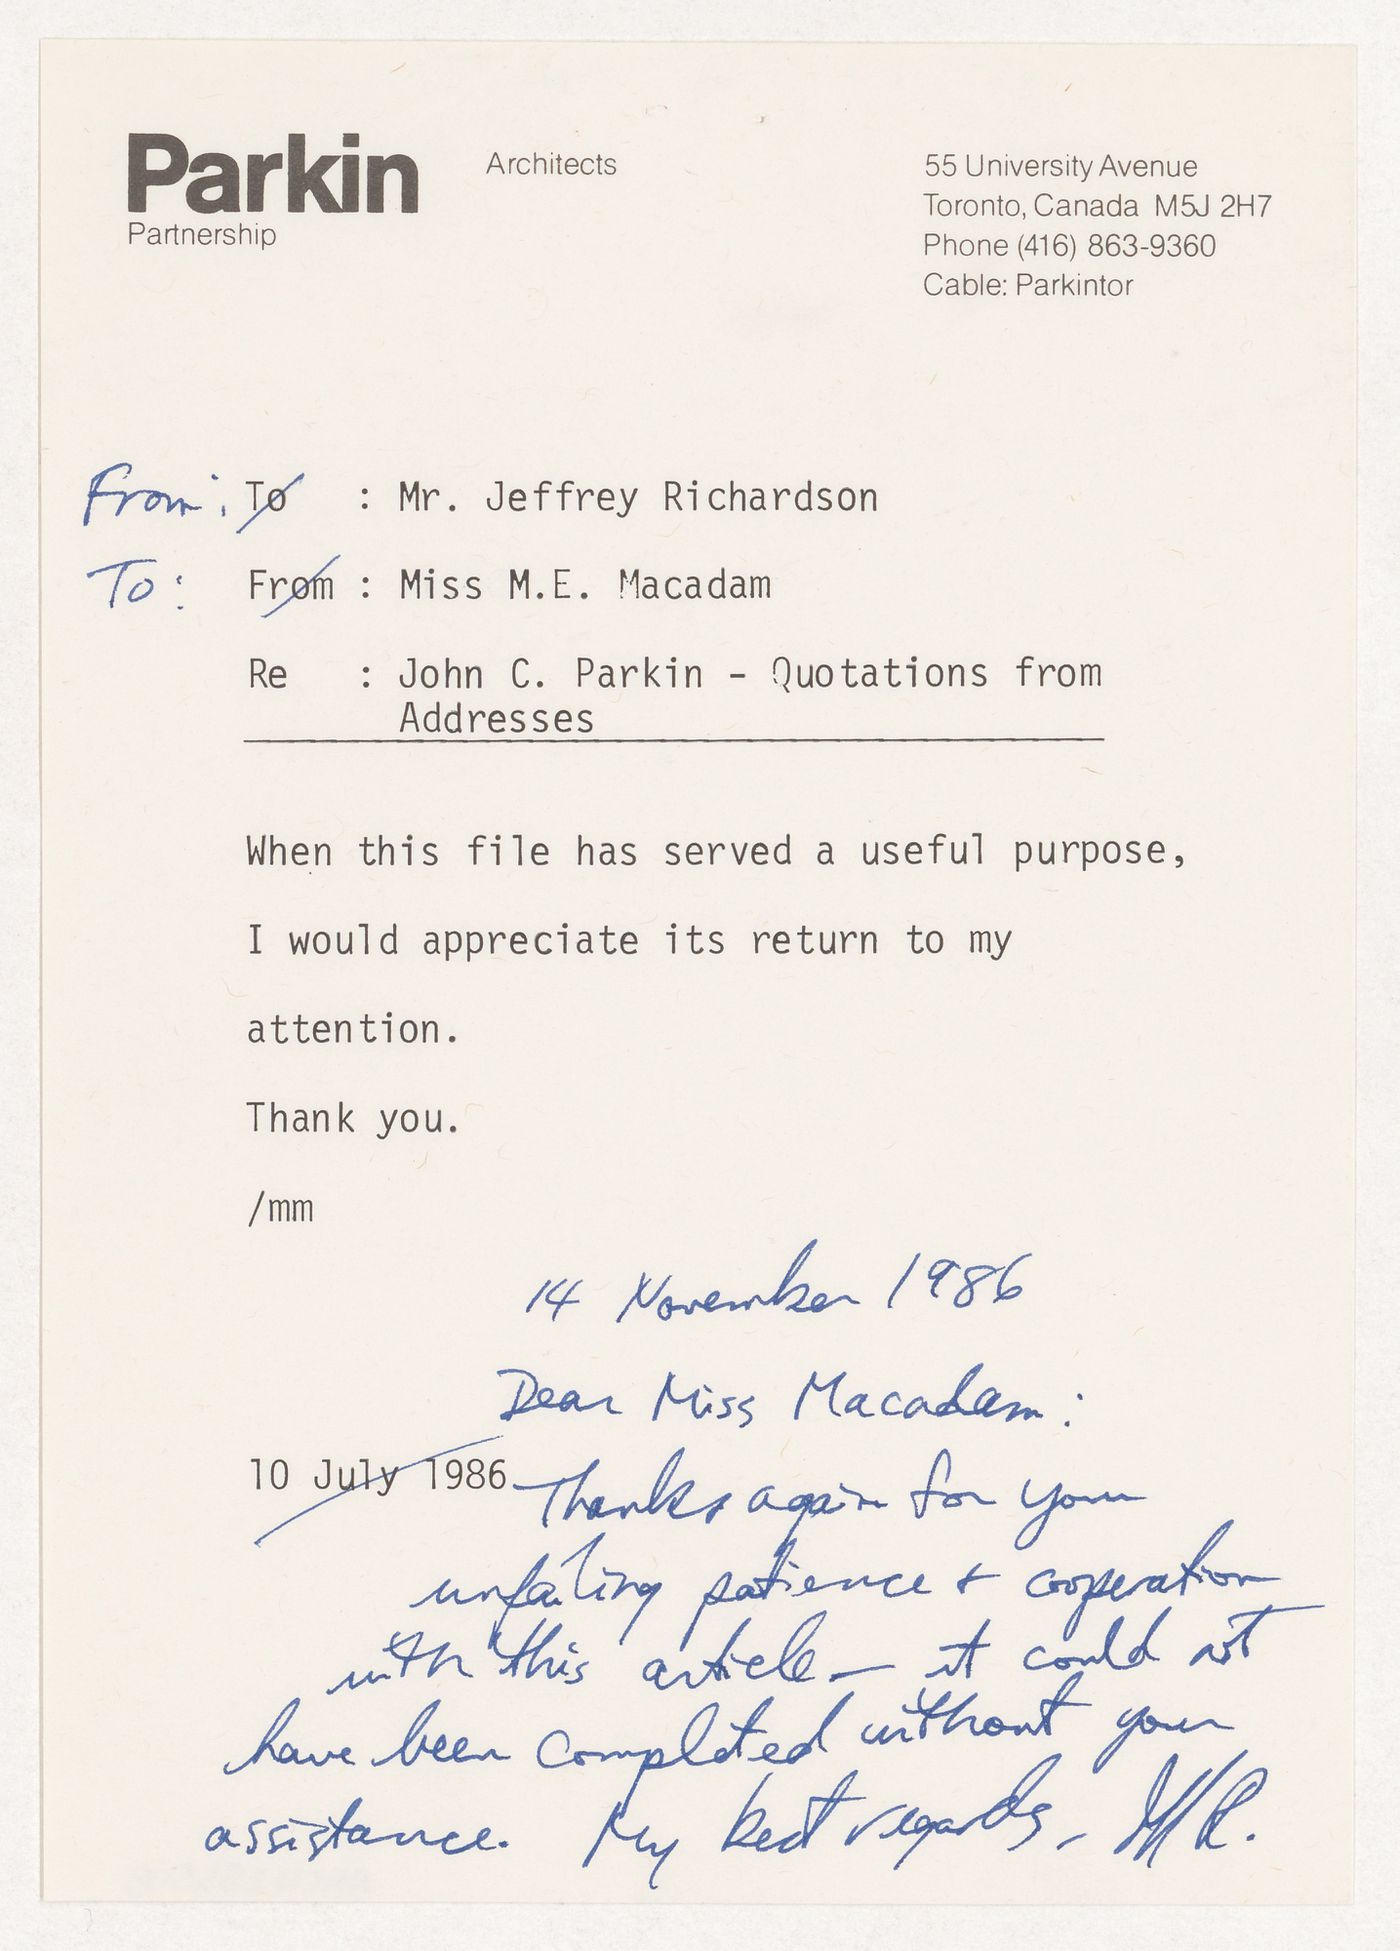 Parkin Architects
Partnership
55 University Avenue
Toronto, Canada M5J 2H7
Phone (416) 863-9360
Cable: Parkintor
From: To : Mr. Jeffrey Richardson
To: From : Miss M.E. Macadam
Re : John C. Parkin - Quotations from
Addresses
When this file has served a useful purpose,
I would appreciate its return to my
attention.
Thank you.
/mm
14 November 1986
Dear Miss Macadam:
10 July 1986
Thanks again for your
unfailing patience + cooperation
with this article — it could not
have been completed without your
assistance. My best regards,